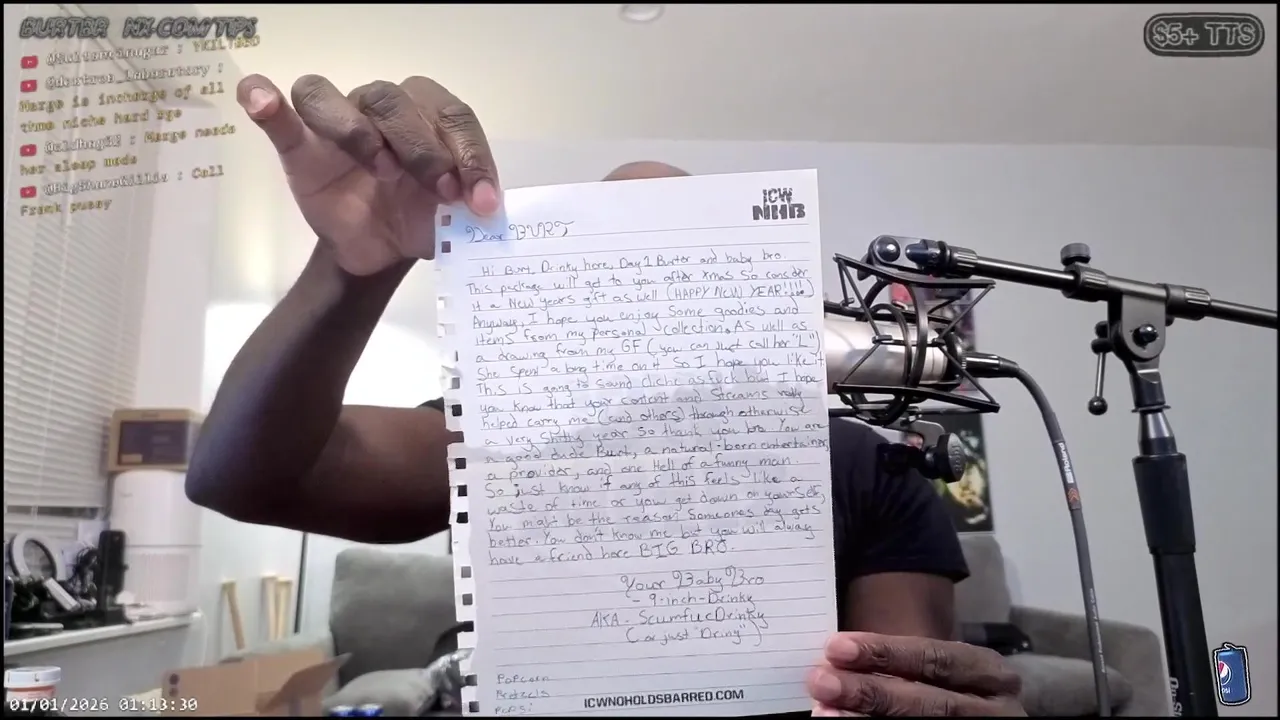 BURTBR NX.COM/TIPS
$5+ TTS
@dextros_Laboratory :
Marge is incharge of all
thme niche hard age
: Marge needs
her sleep mode
: Call
Frank pussy
ICW
NHB
Dear BURT
Hi Burt, Drinky here, Day 1 Burter and baby bro.
This package will get to you after Xmas so consider
it a New years gift as well (HAPPY NEW YEAR!!!!)
Anyway, I hope you enjoy some goodies and
items from my personal collection. As well as
a drawing from my GF (you can just call her "L")
She spent a long time on it so I hope you like it.
This is going to sound cliche as fuck but I hope
you know that your content and streams really
helped carry me (and others) through otherwise
a very shitty year so thank you bro. You are
a good dude Burt, a natural-born entertainer,
a provider, and one Hell of a funny man.
So just know if any of this feels like a
waste of time or you get down on yourself,
You might be the reason someones day gets
better. You don't know me but you will always
have a friend here BIG BRO.
Your Baby Bro
- 9-inch-Drinky
AKA - ScumfucDrinky
(or just "Drinky")
Popcorn
Pretzels
Pepsi
ICWNOHOLDSBARRED.COM
01/01/2026 01:13:30